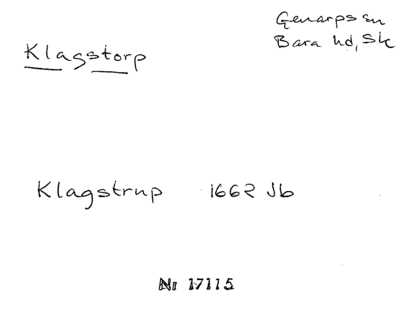 Genarps sn
Bara hd, Sk
Klagstorp
Klagstrup 1662 Jb
Nr 17115